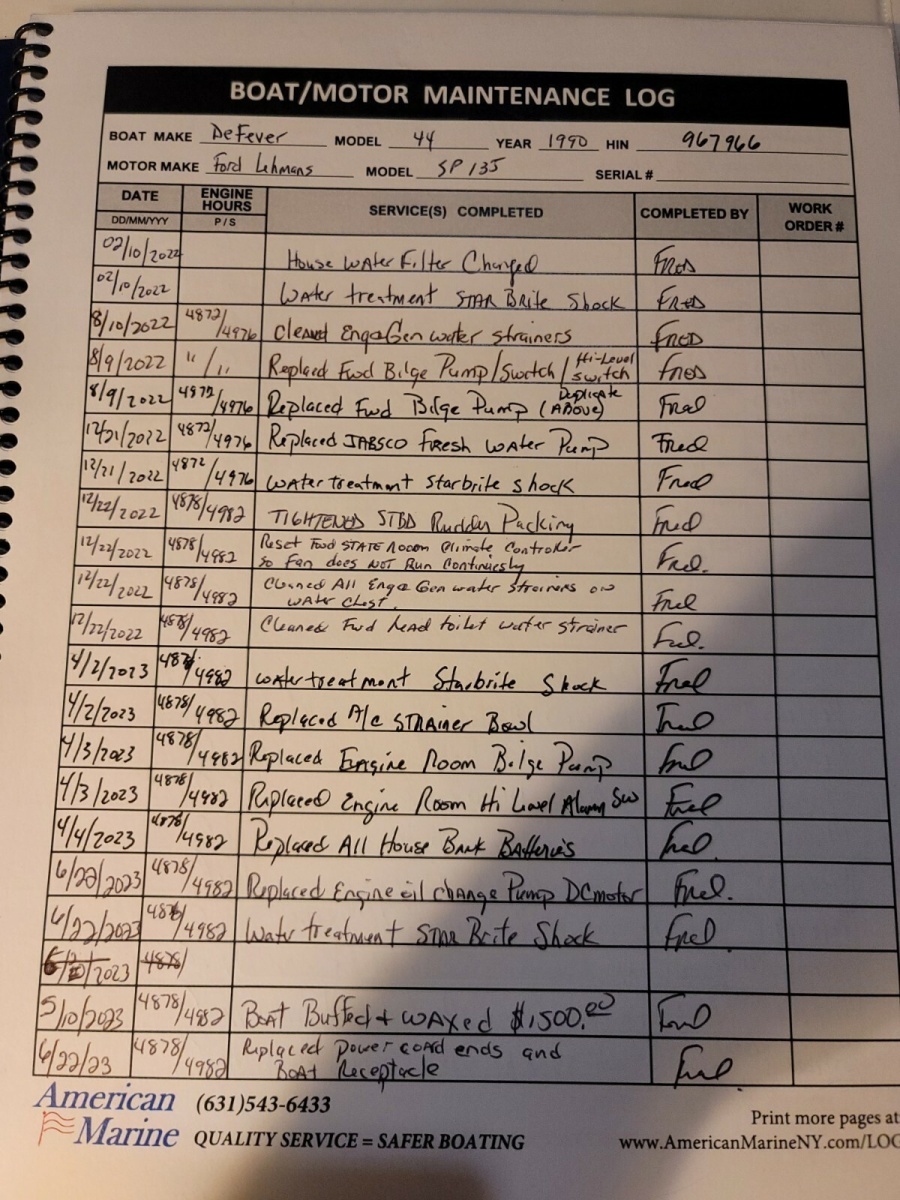 BOAT/MOTOR MAINTENANCE LOG
BOAT MAKE DeFever MODEL 44 YEAR 1990 HIN 967966
MOTOR MAKE Ford Lehmans MODEL SP 135 SERIAL #
DATE ENGINE HOURS SERVICE(S) COMPLETED COMPLETED BY WORK ORDER #
DD/MM/YYY P/S
02/10/2022 House Water Filter Changed FRED
02/10/2022 Water treatment STAR Brite Shock FRED
8/10/2022 4872/4976 Cleaned Eng&Gen water strainers FRED
8/9/2022 "/" Replaced Fwd Bilge Pump/Switch/Hi-Level switch FRED
8/9/2022 4972/4976 Replaced Fwd Bilge Pump (Duplicate ABOVE) Fred
12/21/2022 4872/4976 Replaced JABSCO Fresh Water Pump Fred
12/21/2022 4872/4976 Water treatment Starbrite Shock Fred
12/22/2022 4878/4982 TIGHTENED STBD Rudder Packing Fred
12/22/2022 4878/4982 Reset Fwd STATE Room Climate Controller
so Fan does NOT Run Continuesly Fred.
12/22/2022 4878/4982 Cleaned All Eng&Gen water strainers on
water chest. Fred
12/22/2022 4878/4982 Cleaned Fwd head toilet water strainer Fred.
4/2/2023 4878/4982 Water treatment Starbrite Shock Fred
4/2/2023 4878/4982 Replaced A/C STRAINER Bowl Fred
4/3/2023 4878/4982 Replaced Engine Room Bilge Pump Fred
4/3/2023 4878/4982 Replaced Engine Room Hi Level Alarm SW Fred
4/4/2023 4878/4982 Replaced All House Bank Batteries Fred.
6/22/2023 4878/4982 Replaced Engine oil change Pump DC motor Fred.
6/22/2023 4878/4982 Water treatment STAR Brite Shock Fred
/2023 4878/
5/10/2023 4878/4982 Boat Buffed + WAXED $1,500.00 Fred
6/22/23 4878/4982 Replaced power cord ends and
Boat Receptacle Fred.
American Marine (631)543-6433
QUALITY SERVICE = SAFER BOATING
Print more pages at
www.AmericanMarineNY.com/LOG